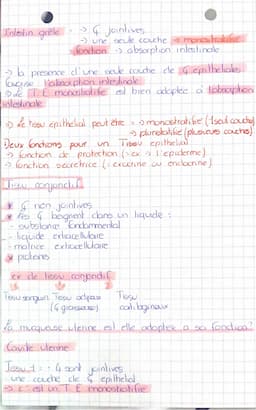 Intestin grêle : -> ¢ jointives
-> une seule couche -> monostratifié
fonction -> absorption intestinale
-> la présence d'une seule couche de ¢ epitheliales
favorise l'absorption intestinale
-> Le T.E monostratifié est bien adaptée à l'absorption
intestinale
-> Le tissu epithelial peut être : -> monostratifié (1 seul couche)
-> pluristratifié (plusieurs couches)
Deux fonctions pour un Tissu epithelial
-> fonction de protection (-> ex -> l'epiderme)
-> fonction secrétrice (: exocrine ou endocrine)
Tissu conjonctif
* ¢ non jointives
* les ¢ baignent dans un liquide :
- substance fondamental
- liquide extracellulaire
- matrice extracellulaire
* protéines
ex de tissu conjonctif
Tissu sanguin Tissu adipeux Tissu
(¢ graisseuses) cartilagineux
La muqueuse utérine est elle adaptée a sa fonction?
Cavité utérine
Tissu 1 = ¢ sont jointives
une couche de ¢ epithelial
-> c'est un T.E monostratifié